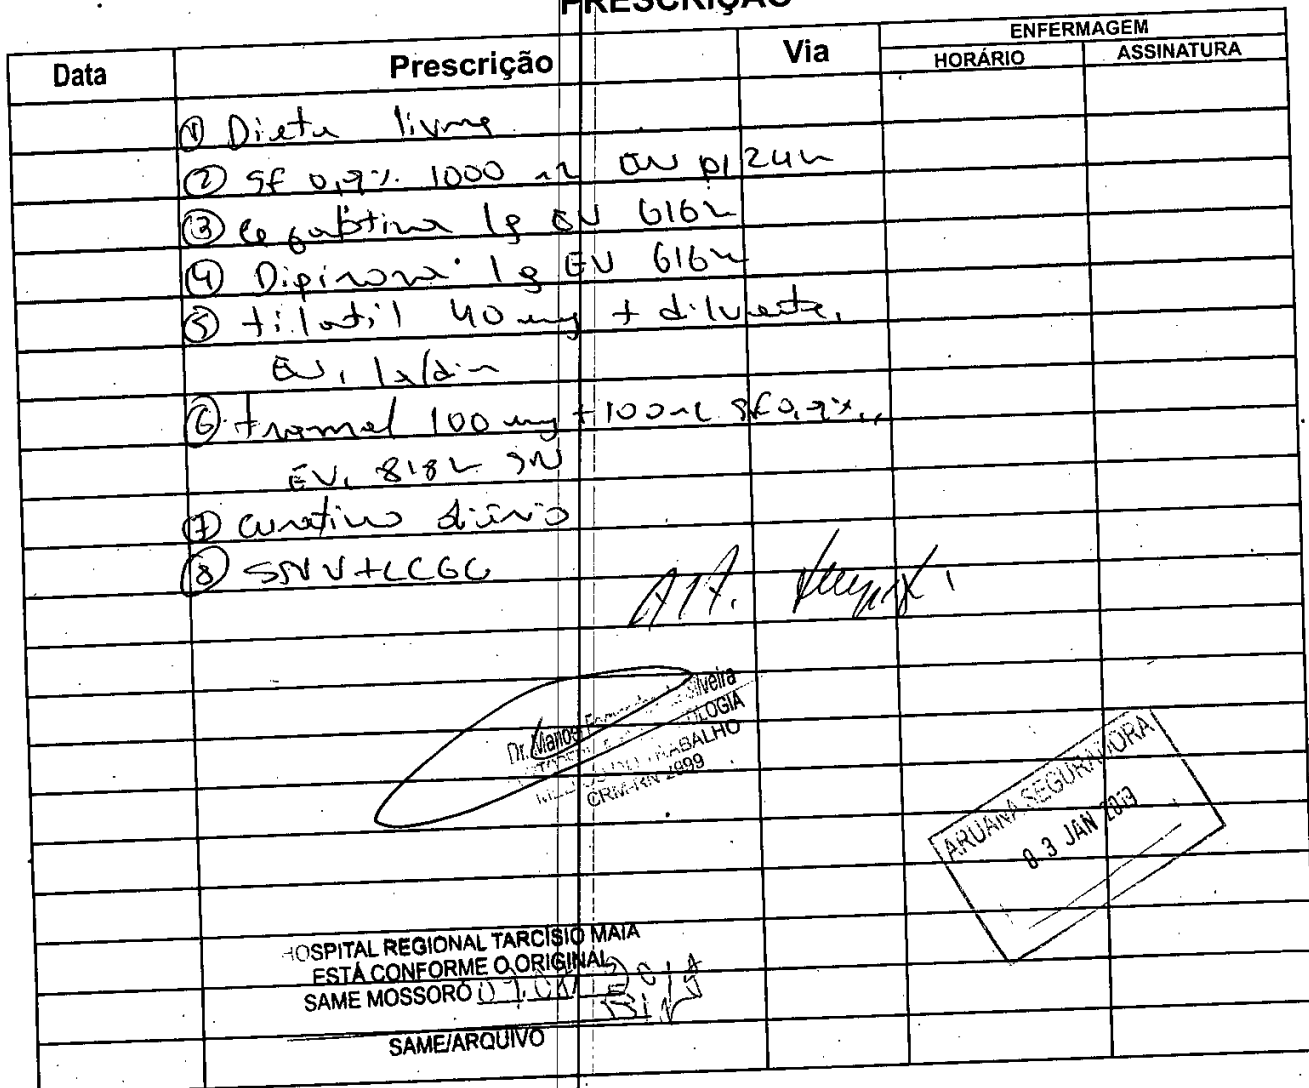 PRESCRIÇÃO
Data Prescrição Via ENFERMAGEM
HORÁRIO ASSINATURA
① Dieta livre
② SF 0,9% 1000 ml EV p/ 24h
③ 1g EV 6/6h
④ Dipirona 1g EV 6/6h
⑤ tilatil 40 mg + diluente,
EV, 1x/dia
⑥ tramal 100 mg + 100 ml SF 0,9%,
EV, 8/8h SN
⑦ curativo diário
⑧ SSVV + CCGG
Dr.
TRABALHO
CRM-RN
ARUANA SEGURADORA
03 JAN
HOSPITAL REGIONAL TARCÍSIO MAIA
ESTÁ CONFORME O ORIGINAL
SAME MOSSORÓ
SAME/ARQUIVO